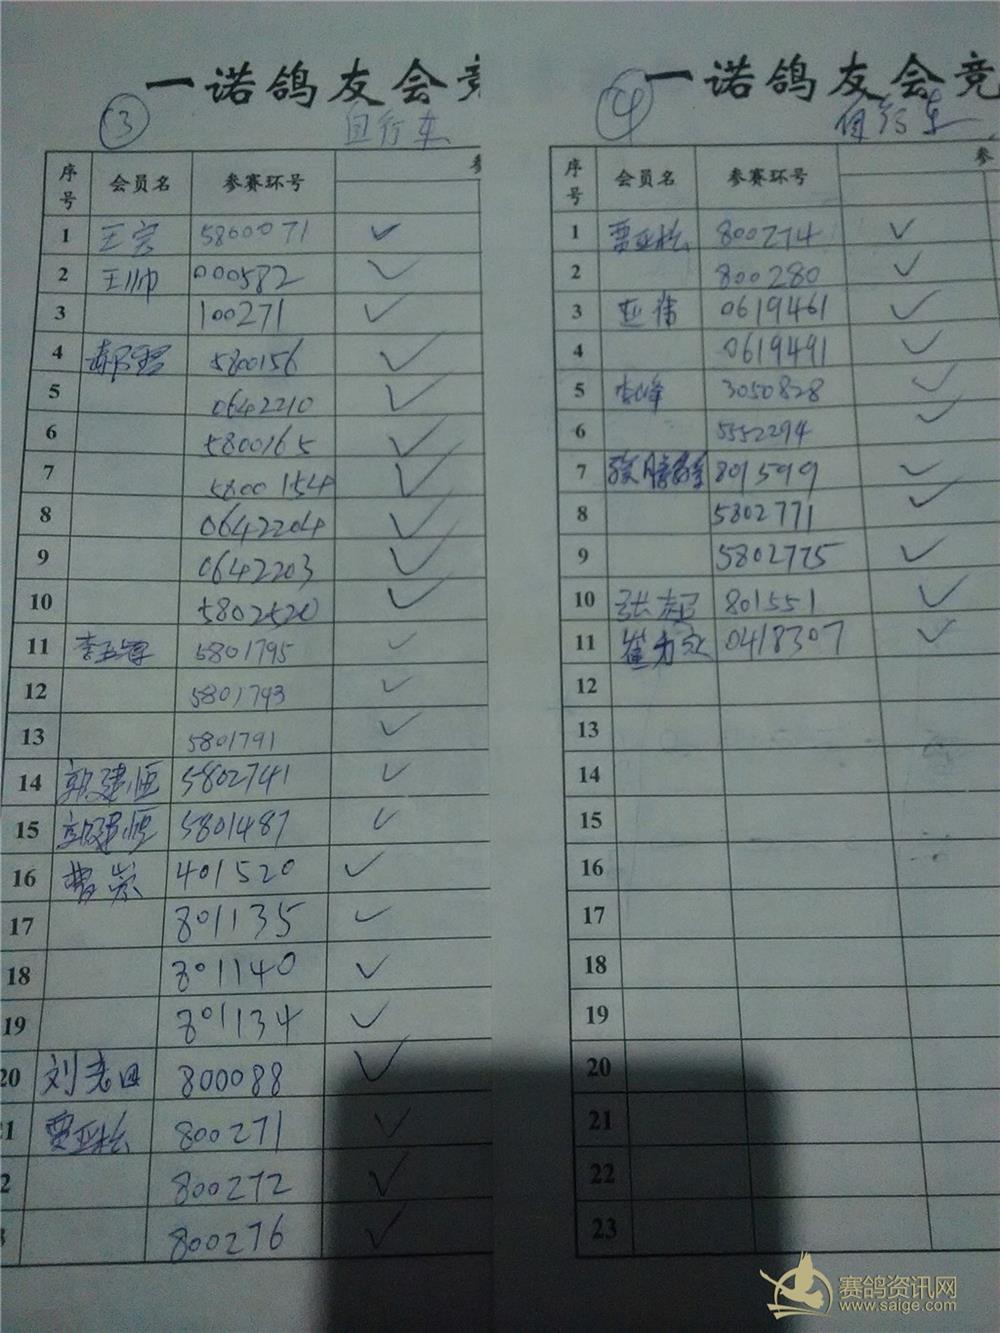 一诺鸽友会竞
③
自行车
序号 会员名 参赛环号 参
1 王宾 5800071 ✓
2 王帅 000582 ✓
3 100271 ✓
4 5800156 ✓
5 0642210 ✓
6 5800165 ✓
7 5800154 ✓
8 0642204 ✓
9 0642203 ✓
10 5802520 ✓
11 5801795 ✓
12 5801743 ✓
13 5801791 ✓
14 郭建恒 5802741 ✓
15 郭建恒 5801487 ✓
16 曹岩 401520 ✓
17 801135 ✓
18 801140 ✓
19 801134 ✓
20 刘志国 800088 ✓
1 贾亚松 800271 ✓
2 800272 ✓
800276 ✓
一诺鸽友会竞
④
自行车
序号 会员名 参赛环号 参
1 贾亚松 800274 ✓
2 800280 ✓
3 亚伟 0619461 ✓
4 0619491 ✓
5 李峰 3050828 ✓
6 5552294 ✓
7 801599 ✓
8 5802771 ✓
9 5802775 ✓
10 张超 801551 ✓
11 0418307 ✓
12
13
14
15
16
17
18
19
20
21
22
23
赛鸽资讯网
www.saige.com